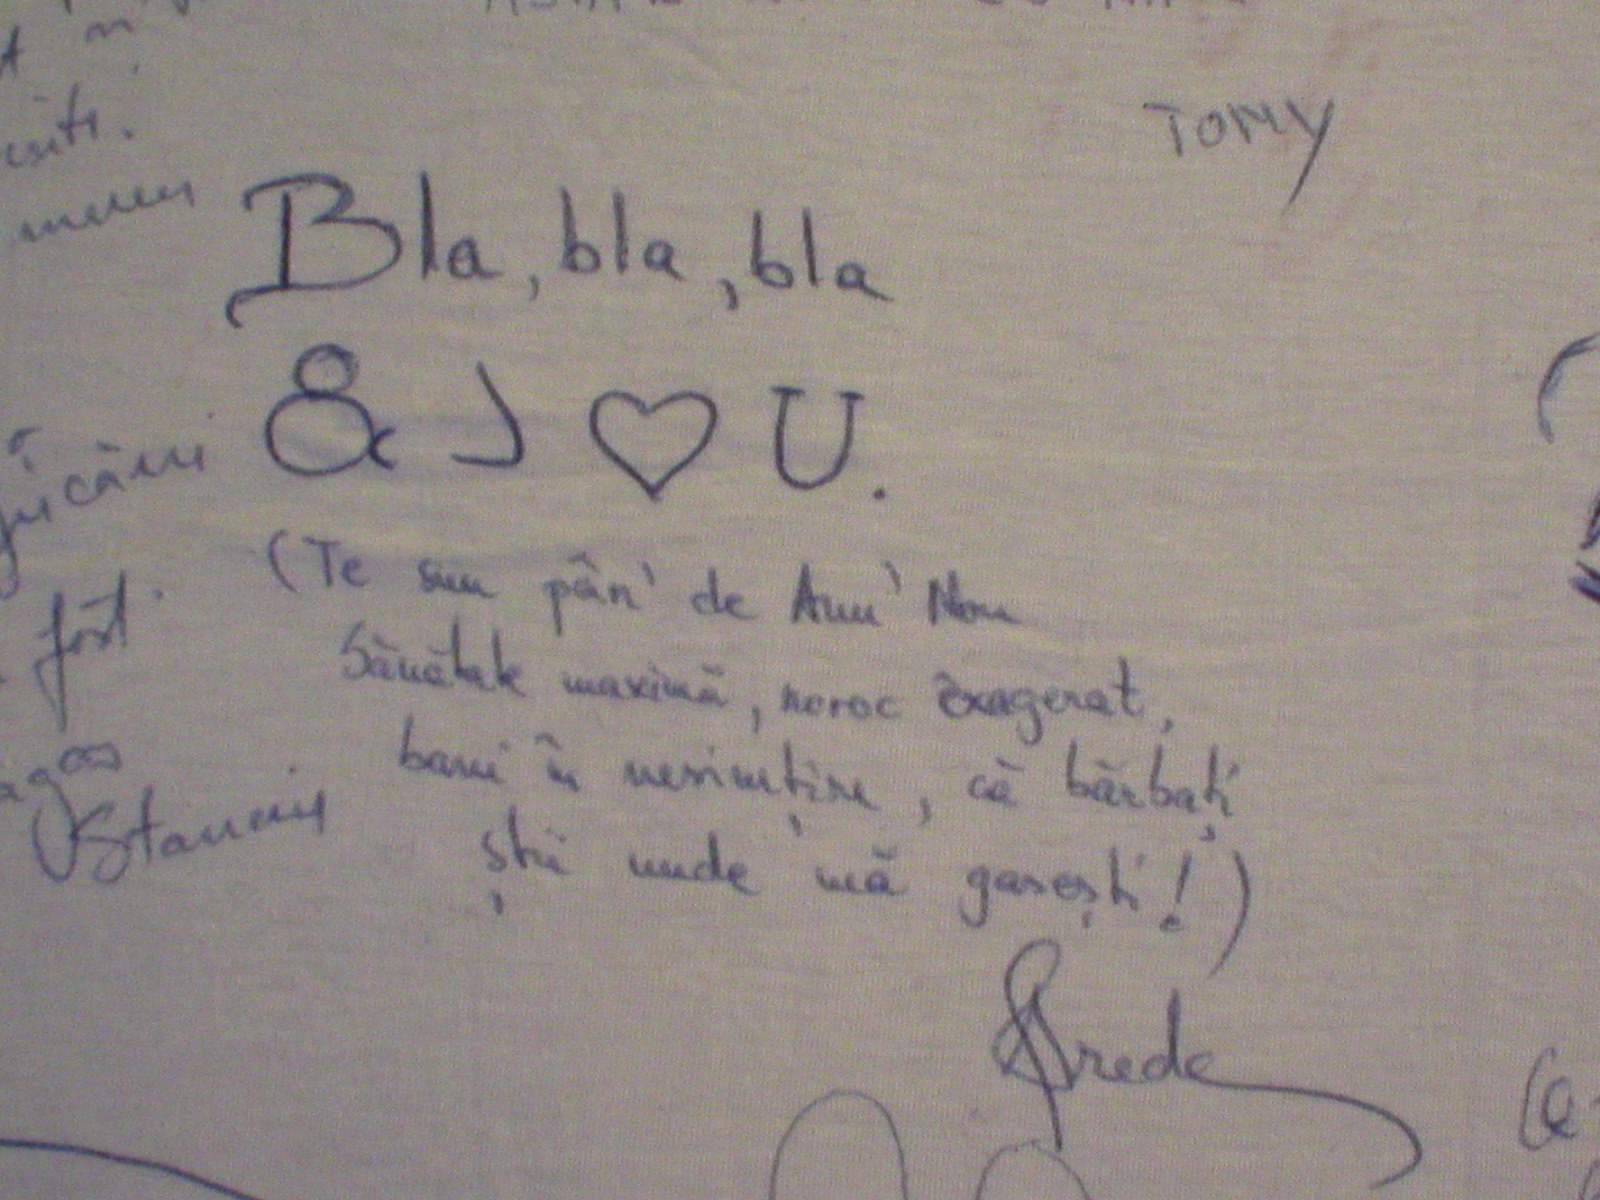 TOMY
Bla, bla, bla
& J ♥ U.
(Te sun pân' de Anu' Nou
Sănătate maximă, noroc exagerat,
bani în nesimțire, că bărbați
știi unde mă gasești!)
fost.
Stanciu